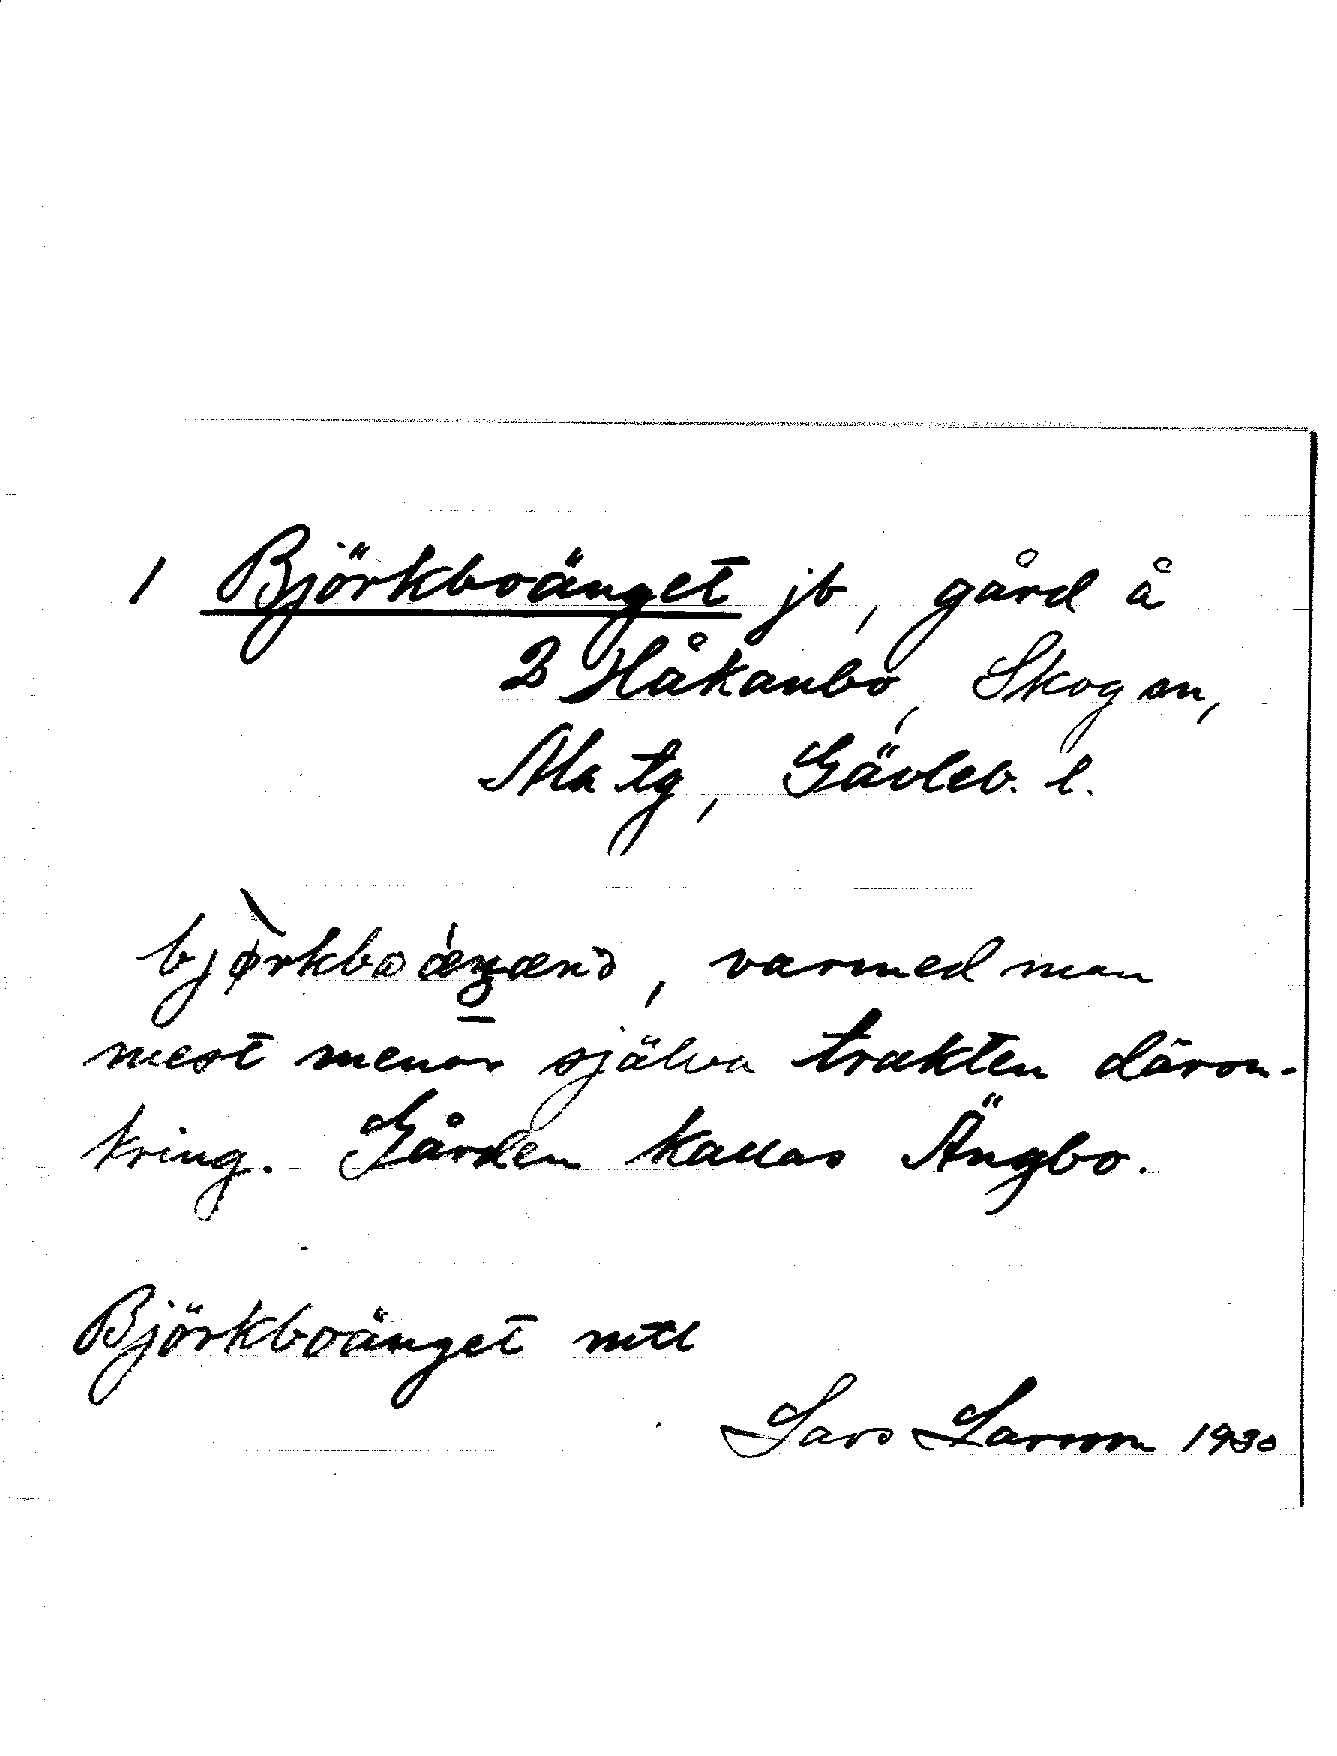 1 Björkboänget jb, gård å
2 Håkanbo, Skog sn,
Ala tg, Gävleb. l.
varmed man
mest menar själva trakten därom-
kring. Gården kallas Ängbo.
Björkboänget mtl
Lars Larsson 1930